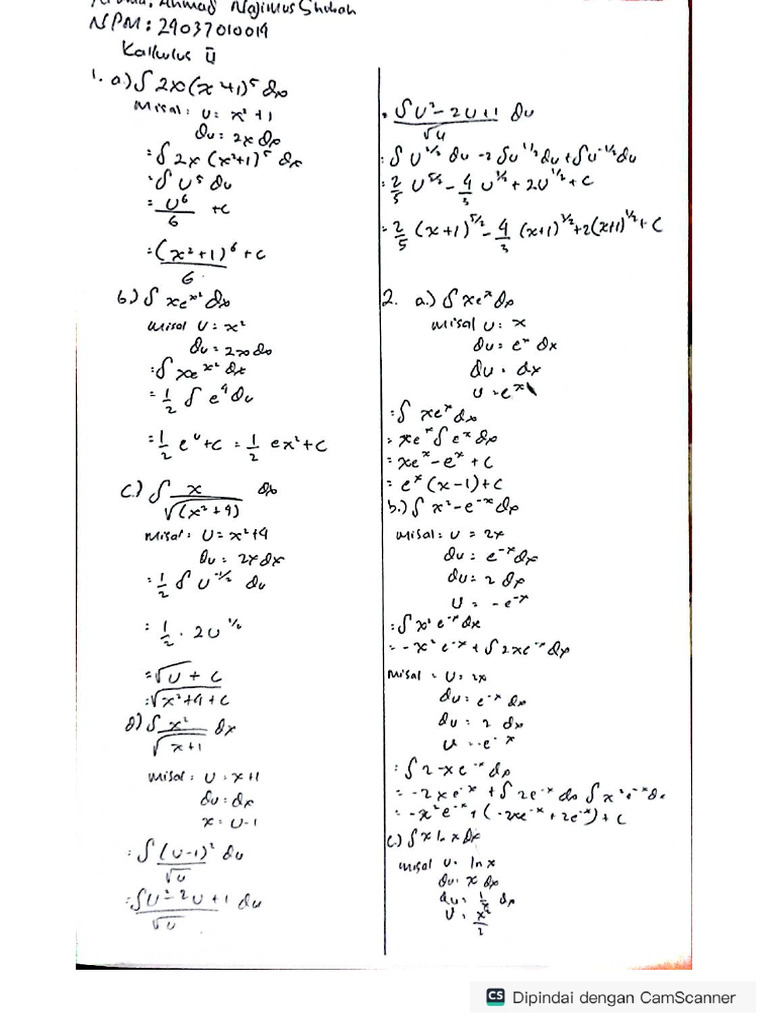 NPM: 24037010019
Kalkulus II
1. a) ∫ 2x(x²+1)⁵ dx
Misal: U = x²+1
du = 2x dx
= ∫ 2x (x²+1)⁵ dx
= ∫ U⁵ du
= U⁶/6 + c
= (x²+1)⁶/6 + c
b) ∫ xe^x² dx
Misal U = x²
du = 2x dx
= ∫ xe^x² dx
= 1/2 ∫ e^u du
= 1/2 e^u + c = 1/2 ex² + c
c.) ∫ x/√(x²+9) dx
Misal: U = x²+9
du = 2x dx
= 1/2 ∫ U^-1/2 du
= 1/2 · 2U^1/2
= √U + C
= √x²+9 + C
d) ∫ x²/√x+1 dx
Misal: U = x+1
du = dx
x = U-1
= ∫ (U-1)²/√U du
= ∫ U²-2U+1/√U du
= ∫ U²-2U+1/√U du
= ∫ U^3/2 du -2 ∫U^1/2 du + ∫U^-1/2 du
= 2/5 U^5/2 - 4/3 U^3/2 + 2U^1/2 + C
= 2/5 (x+1)^5/2 - 4/3 (x+1)^3/2 + 2(x+1)^1/2 + C
2. a.) ∫ xe^x dx
Misal U = x
du = e^x dx
du = dx
U = e^x
= ∫ xe^x dx
= xe^x ∫ e^x dx
= xe^x - e^x + C
= e^x (x-1) + C
b.) ∫ x² - e^-x dx
Misal: U = 2x
du = e^-x dx
du = 2 dx
U = -e^-x
= ∫ x² e^-x dx
= -x² e^-x + ∫ 2xe^-x dx
Misal = U = 2x
du = e^-x dx
du = 2 dx
U = -e^-x
= ∫ 2-xe^-x dx
= -2xe^-x + ∫ 2e^-x dx ∫ x² e^-x dx
= -x²e^-x + (-2xe^-x + 2e^-x) + C
c.) ∫ x ln x dx
Misal U = ln x
du = x dx
du = 1/x dx
U = x²/2
CS Dipindai dengan CamScanner